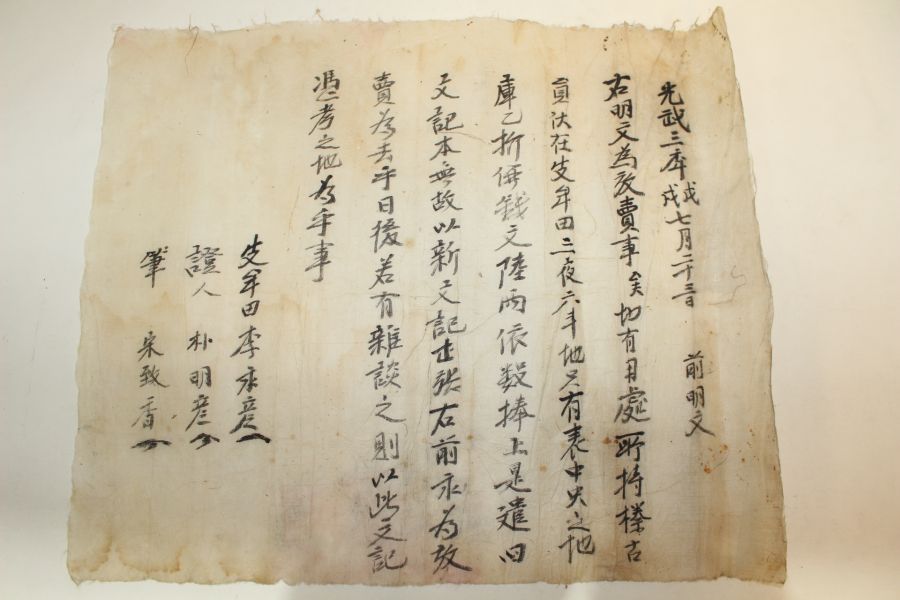 光武三年戊戌七月二十三日 前明文
右明文為放賣事矣切有用處所持樑古
員伏在生牟田二夜六斗地只有表中央之地
庫乙折価錢文陸兩依數捧上是遣田
文記本無故以新文記壹張右前永為放
賣為去乎日後若有雜談之則以此文記
憑考之地為乎事
牟田李永彦
證人 朴明彦
筆 宋致香